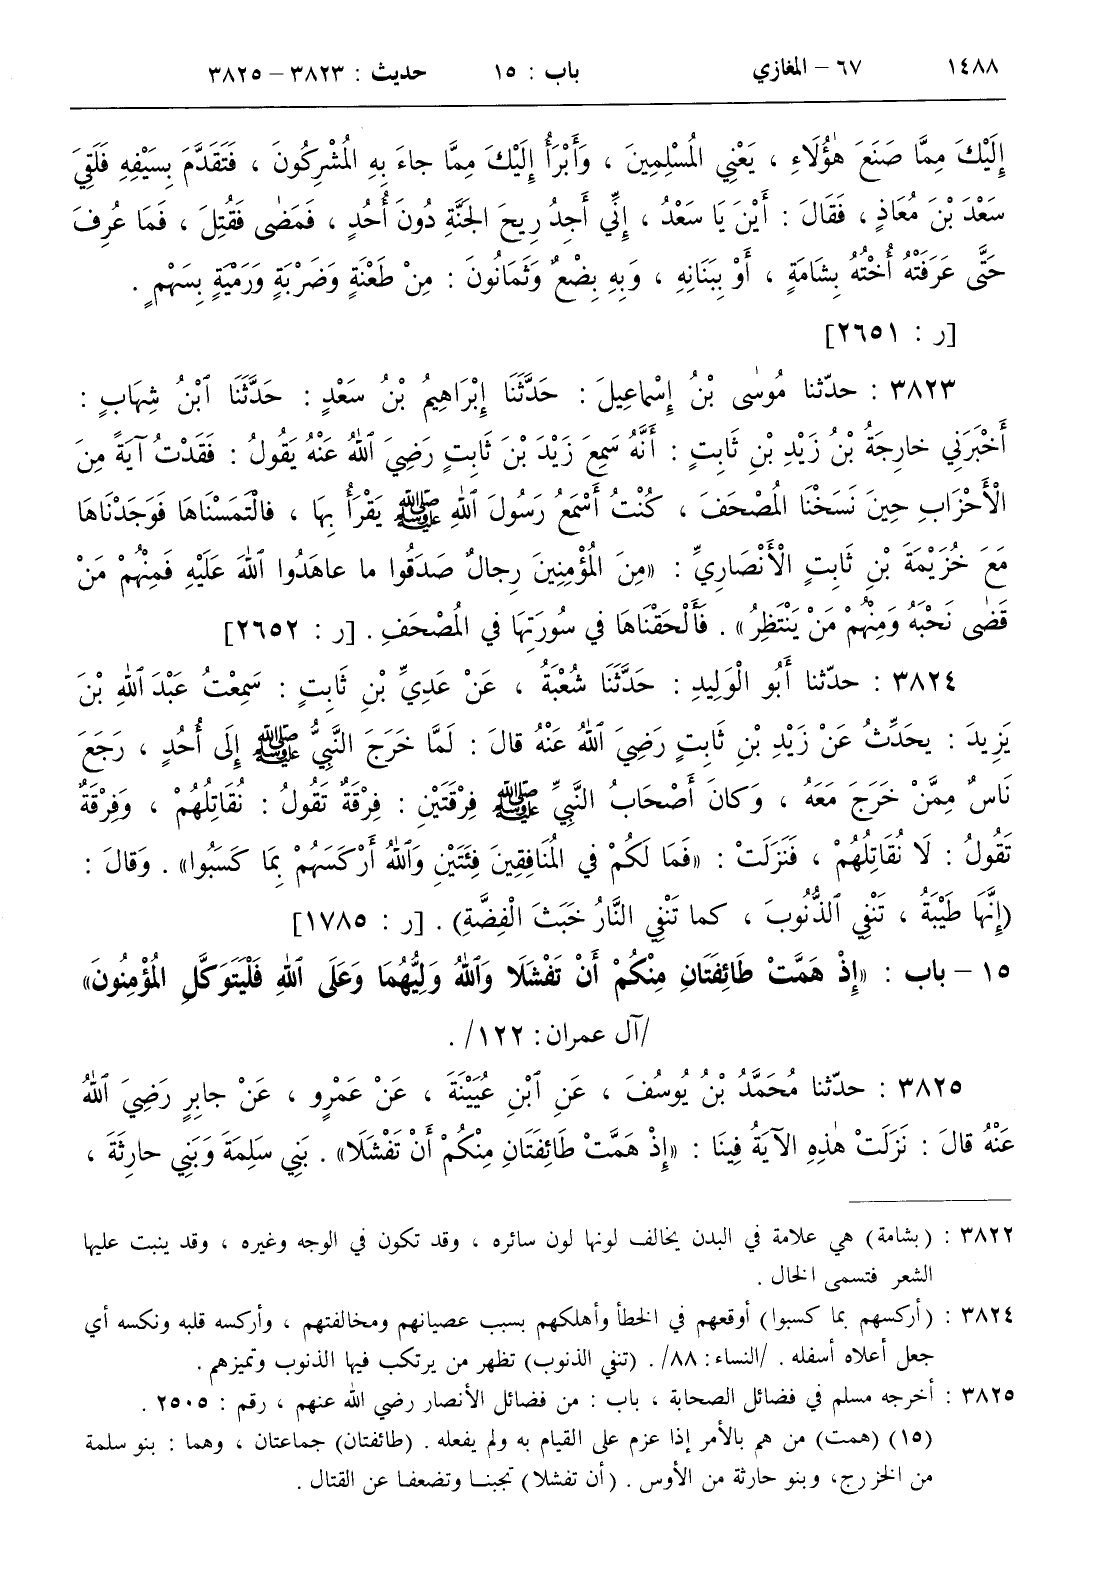 ١٤٨٨ ٦٧ – المغازي باب : ١٥ حديث : ٣٨٢٣ – ٣٨٢٥
إِلَيْكَ مِمَّا صَنَعَ هٰؤُلَاءِ ، يَعْنِي المُسْلِمِينَ ، وَأَبْرَأُ إِلَيْكَ مِمَّا جاءَ بِهِ المُشْرِكُونَ ، فَتَقَدَّمَ بِسَيْفِهِ فَلَقِيَ
سَعْدَ بْنَ مُعَاذٍ ، فَقَالَ : أَيْنَ يَا سَعْدُ ، إِنِّي أَجِدُ رِيحَ الجَنَّةِ دُونَ أُحُدٍ ، فَمَضٰى فَقُتِلَ ، فَمَا عُرِفَ
حَتَّى عَرَفَتْهُ أُخْتُهُ بِشَامَةٍ ، أَوْ بِبَنَانِهِ ، وَبِهِ بِضْعٌ وَثَمَانُونَ : مِنْ طَعْنَةٍ وَضَرْبَةٍ وَرَمْيَةٍ بِسَهْمٍ .
[ر : ٢٦٥١]
٣٨٢٣ : حدّثنا مُوسٰى بْنُ إِسْماعِيلَ : حَدَّثَنَا إِبْرَاهِيمُ بْنُ سَعْدٍ : حَدَّثَنَا ٱبْنُ شِهَابٍ :
أَخْبَرَنِي خارِجَةُ بْنُ زَيْدِ بْنِ ثَابِتٍ : أَنَّهُ سَمِعَ زَيْدَ بْنَ ثَابِتٍ رَضِيَ ٱللهُ عَنْهُ يَقُولُ : فَقَدْتُ آيَةً مِنَ
الْأَحْزَابِ حِينَ نَسَخْنَا المُصْحَفَ ، كُنْتُ أَسْمَعُ رَسُولَ ٱللهِ ﷺ يَقْرَأُ بِهَا ، فالْتَمَسْنَاهَا فَوَجَدْنَاهَا
مَعَ خُزَيْمَةَ بْنِ ثَابِتٍ الْأَنْصَارِيِّ : «مِنَ المُؤْمِنِينَ رِجالٌ صَدَقُوا ما عاهَدُوا ٱللهَ عَلَيْهِ فَمِنْهُمْ مَنْ
قَضٰى نَحْبَهُ وَمِنْهُمْ مَنْ يَنْتَظِرُ» . فَأَلْحَقْنَاهَا فِي سُورَتِهَا فِي المُصْحَفِ . [ر : ٢٦٥٢]
٣٨٢٤ : حدّثنا أَبُو الْوَلِيدِ : حَدَّثَنَا شُعْبَةُ ، عَنْ عَدِيِّ بْنِ ثَابِتٍ : سَمِعْتُ عَبْدَ ٱللهِ بْنَ
يَزِيدَ : يُحَدِّثُ عَنْ زَيْدِ بْنِ ثَابِتٍ رَضِيَ ٱللهُ عَنْهُ قالَ : لَمَّا خَرَجَ النَّبِيُّ ﷺ إِلَى أُحُدٍ ، رَجَعَ
نَاسٌ مِمَّنْ خَرَجَ مَعَهُ ، وَكانَ أَصْحَابُ النَّبِيِّ ﷺ فِرْقَتَيْنِ : فِرْقَةٌ تَقُولُ : نُقَاتِلُهُمْ ، وَفِرْقَةٌ
تَقُولُ : لَا نُقَاتِلُهُمْ ، فَنَزَلَتْ : «فَمَا لَكُمْ فِي المُنَافِقِينَ فِئَتَيْنِ وَٱللهُ أَرْكَسَهُمْ بِمَا كَسَبُوا» . وَقالَ :
(إِنَّهَا طَيْبَةُ ، تَنْفِي ٱلذُّنُوبَ ، كما تَنْفِي النَّارُ خَبَثَ الْفِضَّةِ) . [ر : ١٧٨٥]
١٥ – باب : «إِذْ هَمَّتْ طَائِفَتَانِ مِنْكُمْ أَنْ تَفْشَلَا وَٱللهُ وَلِيُّهُمَا وَعَلَى ٱللهِ فَلْيَتَوَكَّلِ المُؤْمِنُونَ»
/آل عمران: ١٢٢/ .
٣٨٢٥ : حدّثنا مُحَمَّدُ بْنُ يُوسُفَ ، عَنِ ٱبْنِ عُيَيْنَةَ ، عَنْ عَمْرٍو ، عَنْ جابِرٍ رَضِيَ ٱللهُ
عَنْهُ قالَ : نَزَلَتْ هٰذِهِ الآيَةُ فِينَا : «إِذْ هَمَّتْ طَائِفَتَانِ مِنْكُمْ أَنْ تَفْشَلَا» . بَنِي سَلِمَةَ وَبَنِي حارِثَةَ ،
٣٨٢٢ : (بشامة) هي علامة في البدن يخالف لونها لون سائره ، وقد تكون في الوجه وغيره ، وقد ينبت عليها
الشعر فتسمى الخال .
٣٨٢٤ : (أركسهم بما كسبوا) أوقعهم في الخطأ وأهلكهم بسبب عصيانهم ومخالفتهم ، وأركسه قلبه ونكسه أي
جعل أعلاه أسفله . /النساء: ٨٨/. (تنفي الذنوب) تظهر من يرتكب فيها الذنوب وتميزهم .
٣٨٢٥ : أخرجه مسلم في فضائل الصحابة ، باب : من فضائل الأنصار رضي الله عنهم ، رقم : ٢٥٠٥ .
(١٥) (همت) من هم بالأمر إذا عزم على القيام به ولم يفعله . (طائفتان) جماعتان ، وهما : بنو سلمة
من الخزرج، وبنو حارثة من الأوس . (أن تفشلا) تجبنا وتضعفا عن القتال .